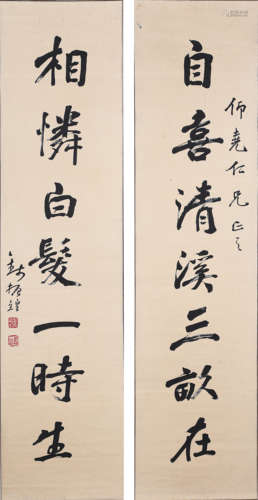 自喜清溪三畝在
師堯仁兄正之
相憐白髮一時生
振煌